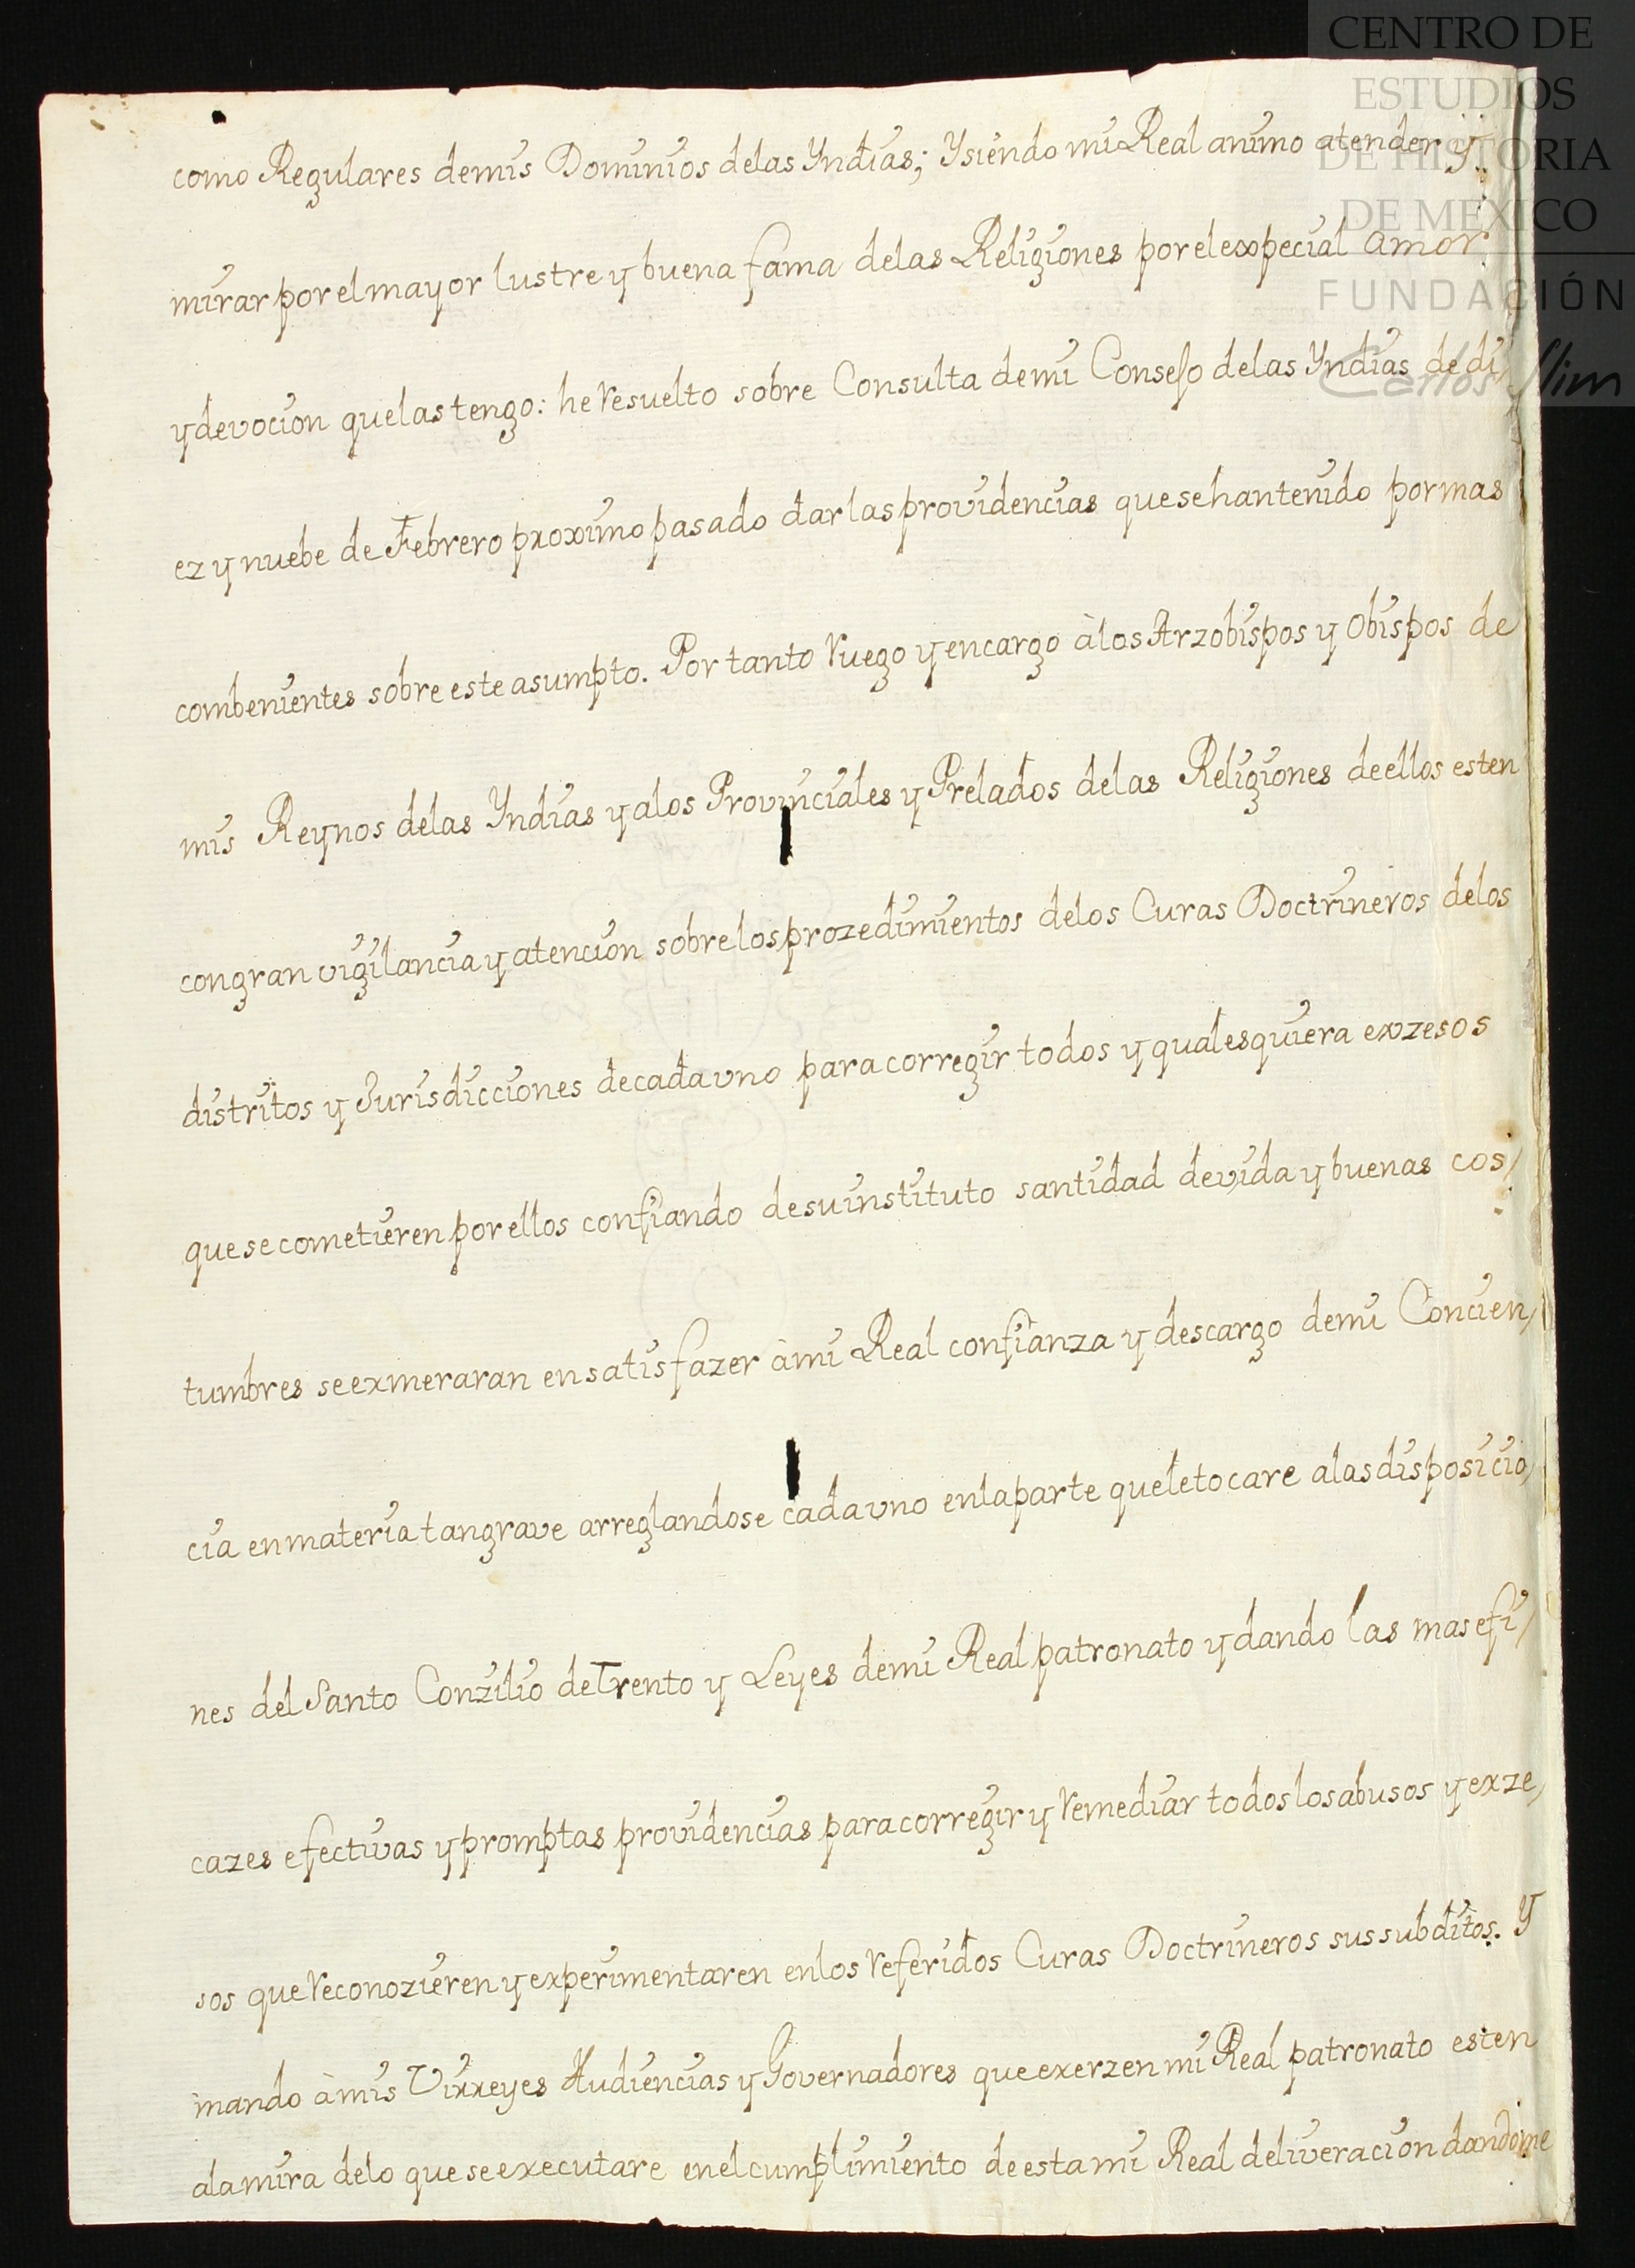 CENTRO DE
ESTUDIOS
DE HISTORIA
DE MEXICO
FUNDACIÓN
Carlos Slim
como Regulares demis Dominios delas Yndias; Ysiendo mi Real animo atender y
mirar por el mayor lustre y buena fama delas Religiones por el expecial amor
y devocion que las tengo: he resuelto sobre Consulta demi Consejo delas Yndias de di/
ez y nuebe de Febrero proximo pasado dar las providencias que se han tenido por mas
combenientes sobre este asumpto. Por tanto ruego y encargo à los Arzobispos y Obispos de
mis Reynos delas Yndias y alos Provinciales y Prelados delas Religiones de ellos esten
con gran vigilancia y atencion sobre los prozedimientos delos Curas Doctrineros delos
distritos y Jurisdicciones de cada uno para corregir todos y qualesquiera exzesos
que se cometieren por ellos confiando de su instituto santidad de vida y buenas cos/
tumbres se exmeraran en satisfazer à mi Real confianza y descargo demi Concien/
cia en materia tan grave arreglandose cada uno en la parte que le tocare a las disposicio/
nes del Santo Conzilio de Trento y Leyes demi Real patronato y dando las mas efi/
cazes efectivas y promptas providencias para corregir y remediar todos los abusos y exze/
sos que reconozieren y experimentaren en los referidos Curas Doctrineros sus subditos. Y
mando à mis Virreyes Audiencias y Governadores que exerzen mi Real patronato esten
ala mira delo que se executare en el cumplimiento de esta mi Real deliveracion dandome